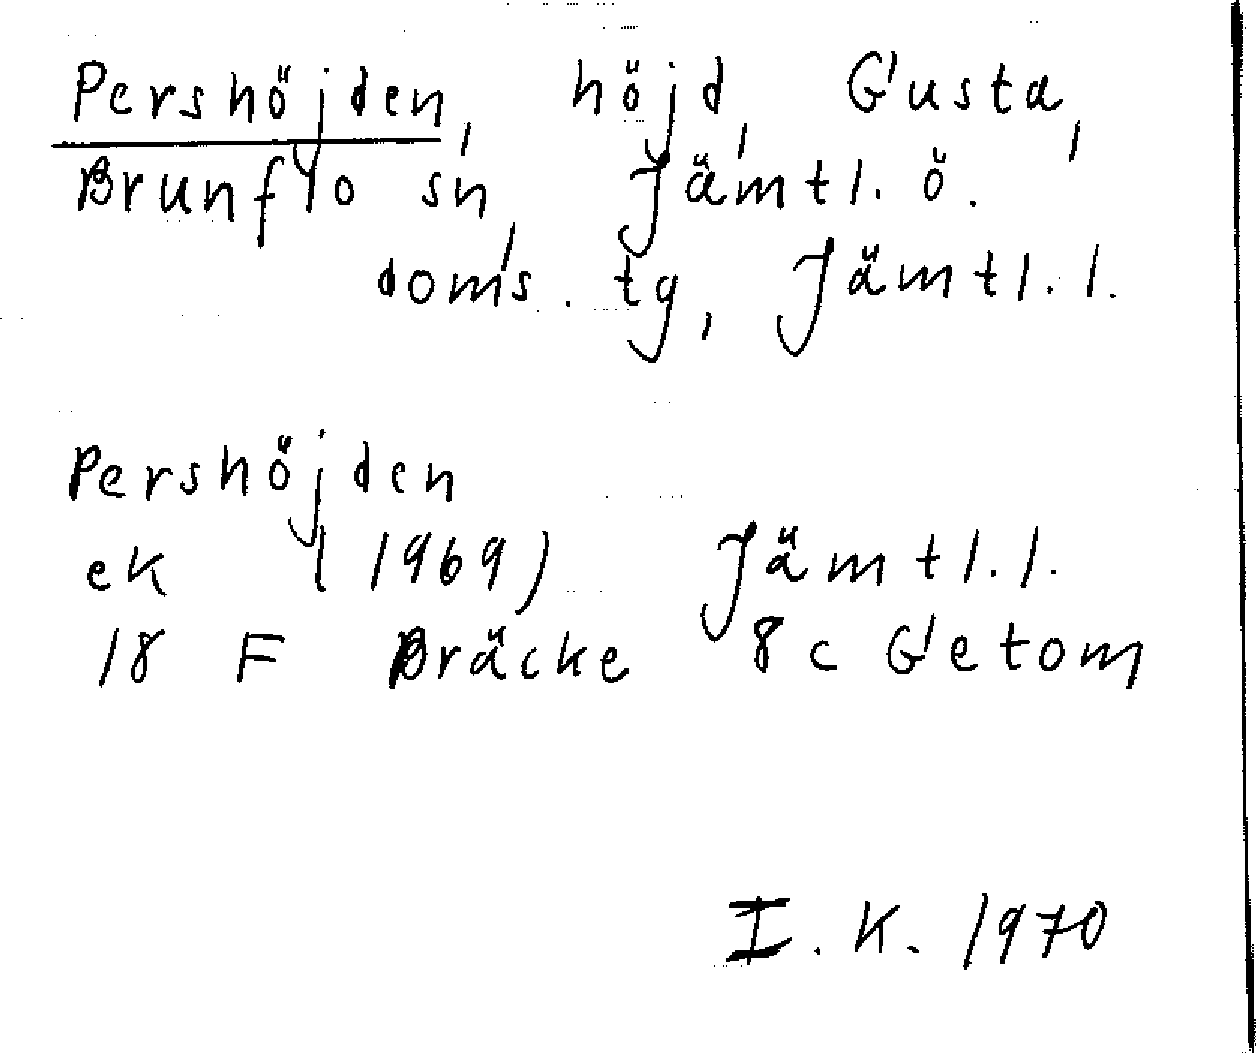 Pershöjden, höjd, Gusta,
Brunflo sn, Jämtl. ö.
doms. tg, Jämtl. l.
Pershöjden
ek (1969) Jämtl. l.
18 F Bräcke 8 c Getom
I. K. 1970